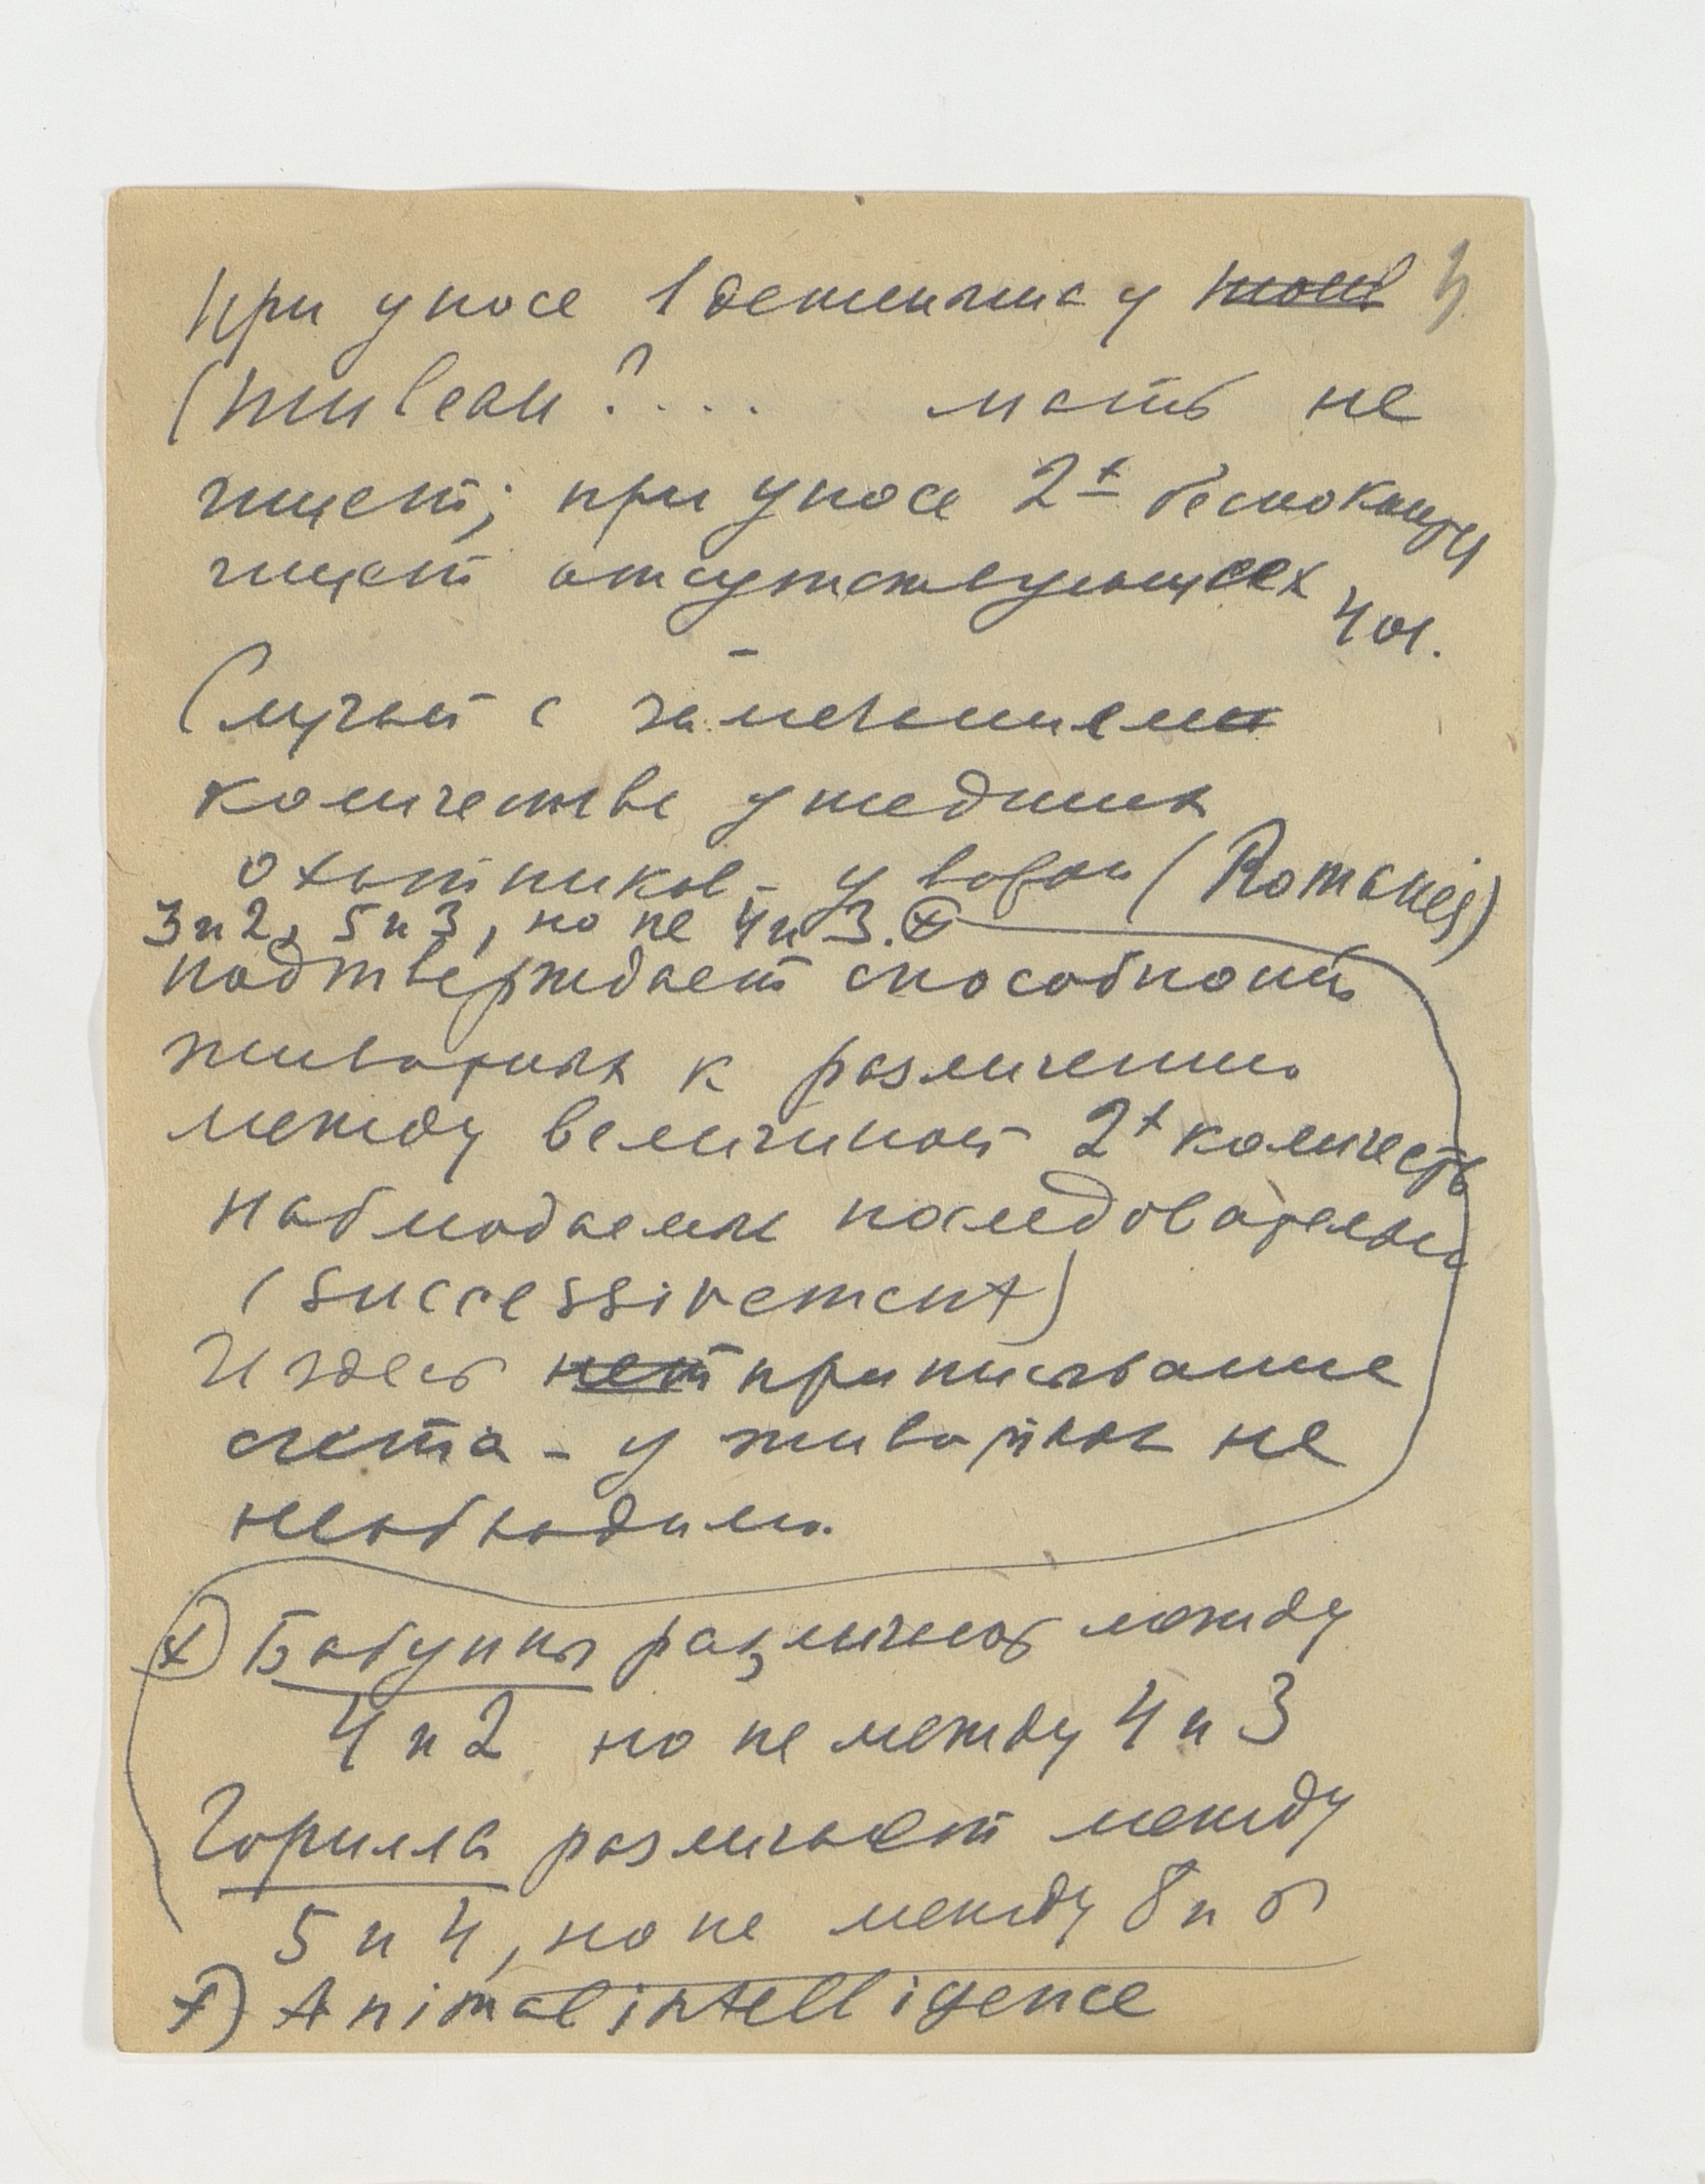 При уносе 1 детеныша у
мать не
ищет; при уносе 2х беспокоится
ищет отсутствующих
4 ч.
Случай с замечанием
количества ушедших
охотников - у ворон (Romanes)
3 и 2, 5 и 3, но не 4 и 3. ⊗
подтверждает способность
животных к различению
между величиной 2х количеств
наблюдаемых последовательно
(successivement)
И здесь нет приписывание
счета - у животных не
необходимо.
х) Бабуины различают между
4 и 2 но не между 4 и 3
Горилла различает между
5 и 4, но не между 8 и 6
х) Animal intelligence